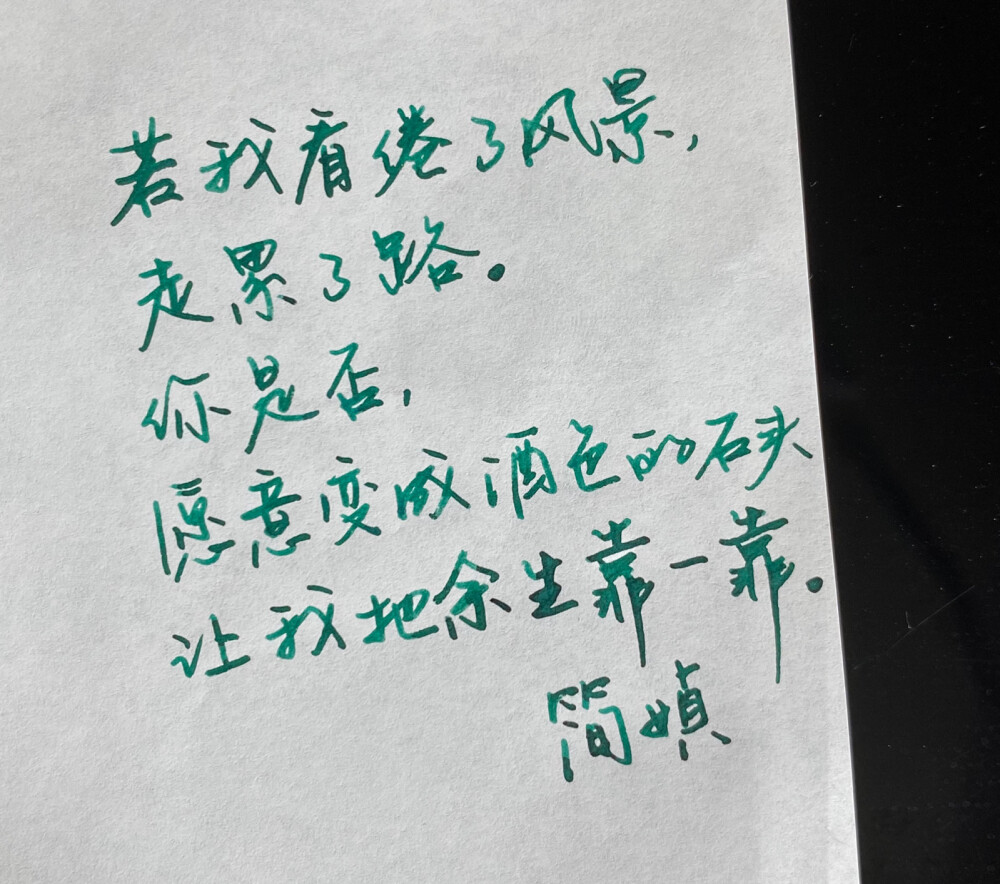 若我看倦了风景，
走累了路。
你是否，
愿意变成酒色的石头
让我把余生靠一靠。
简媜